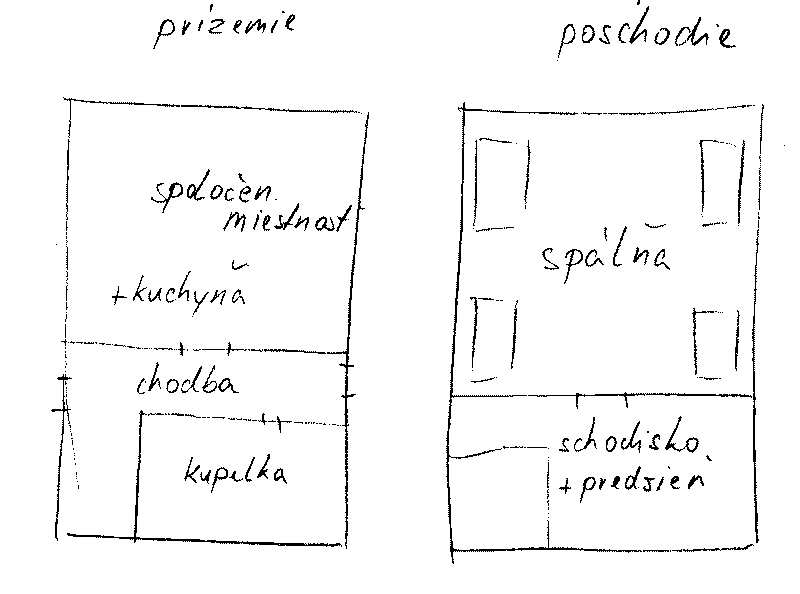 prízemie
poschodie
spoločen.
miestnosť
+kuchyňa
chodba
kupelka
spálňa
schodisko
+ predsieň